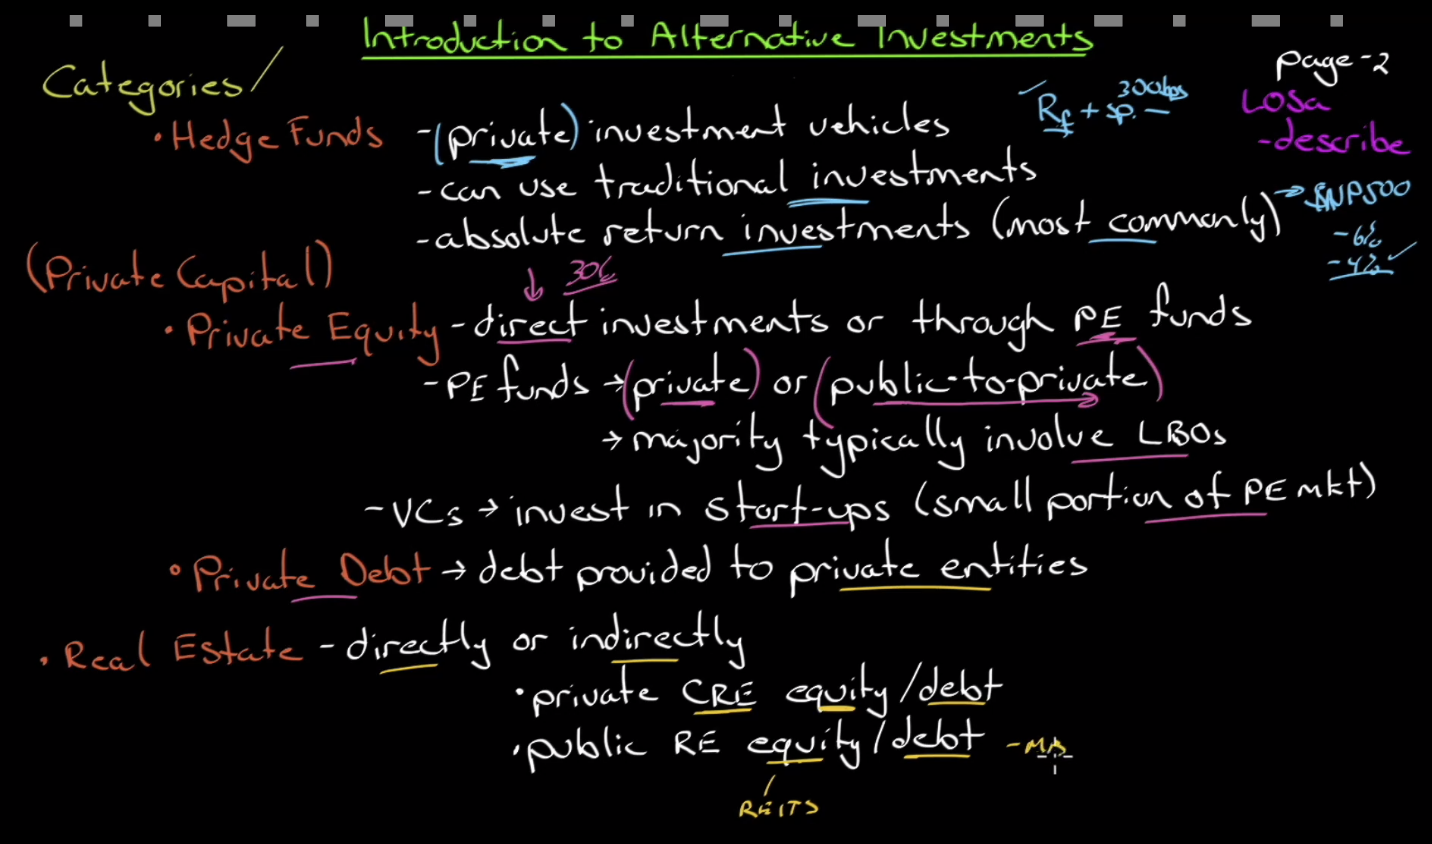 Introduction to Alternative Investments
page-2
Categories/
Rf + sp. 300bps
LOSa
-describe
• Hedge Funds -(private) investment vehicles
-can use traditional investments
-absolute return investments (most commonly) → SNP500
-6%
-4% ✓
(Private Capital)
↓ 30%
• Private Equity - direct investments or through PE funds
-PE funds → (private) or (public-to-private)
→ majority typically involve LBOs
-VCs → invest in start-ups (small portion of PE mkt)
• Private Debt → debt provided to private entities
• Real Estate - directly or indirectly
• private CRE equity/debt
• public RE equity/debt
REITS